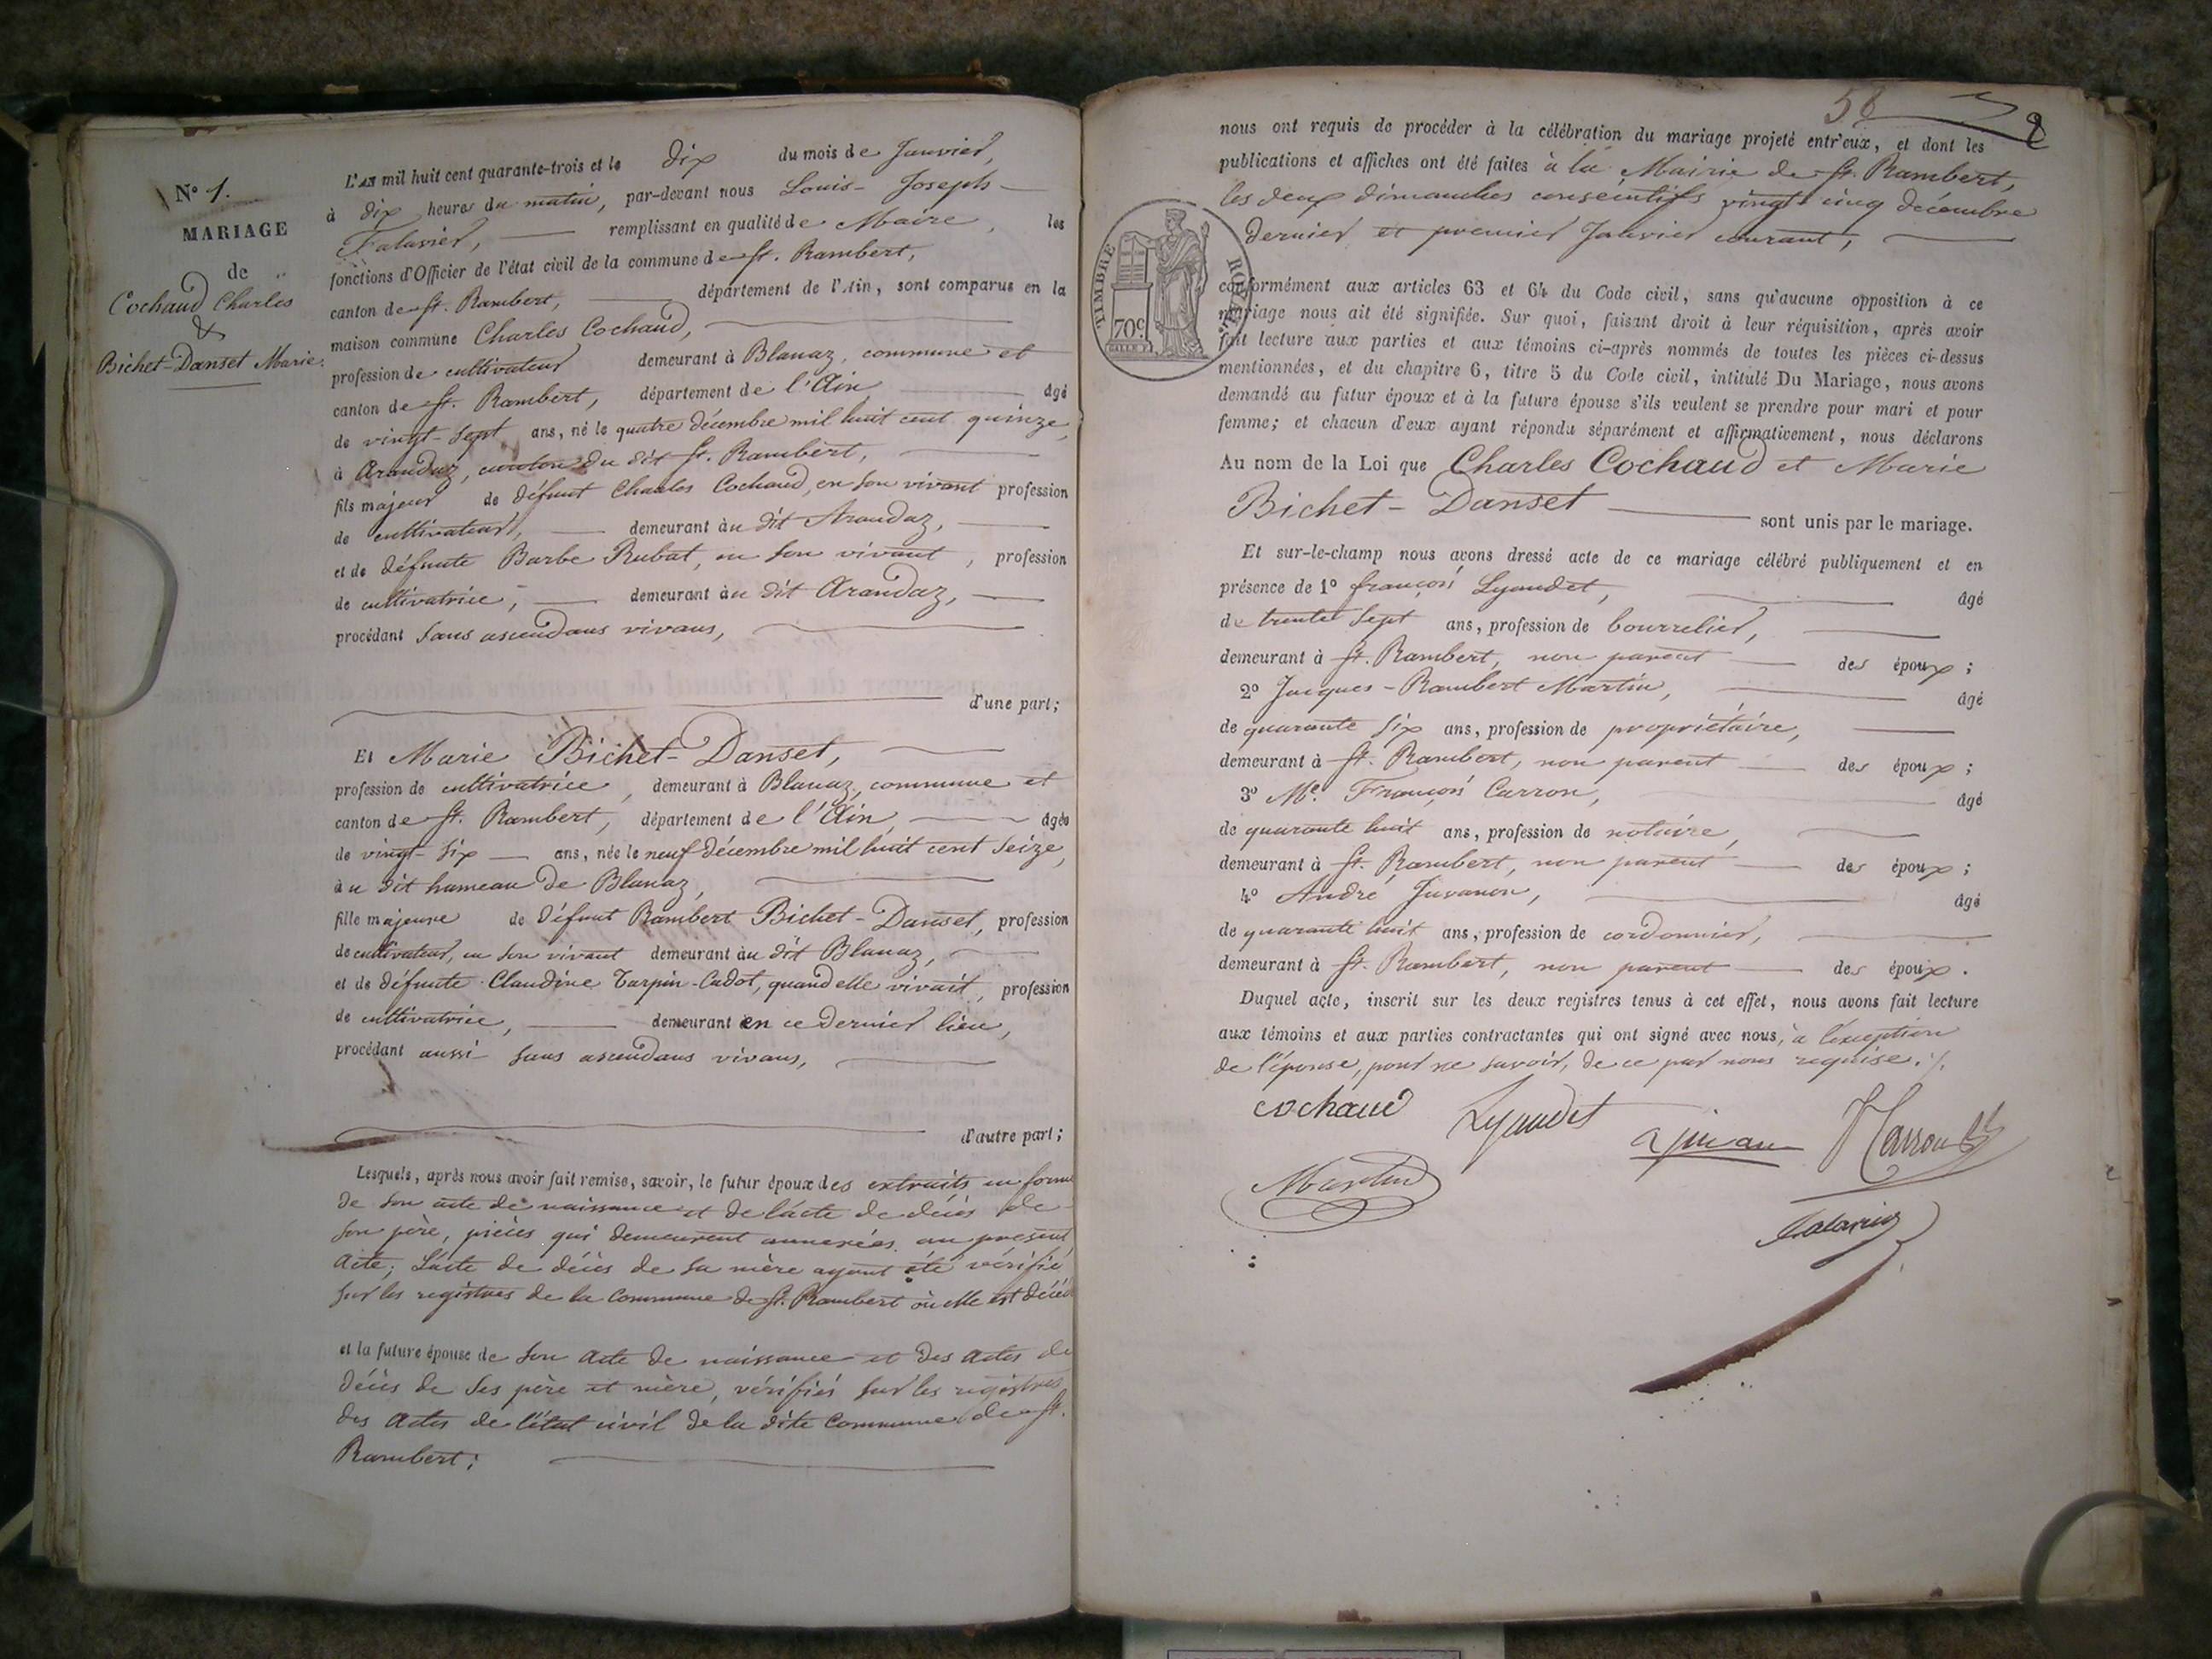 N° 1.
MARIAGE
de
Cochaud Charles
&
Bichet-Danset Marie.
L'AN mil huit cent quarante-trois et le dix du mois de Janvier,
à dix heures du matin, par-devant nous Louis-Joseph
Falavier, remplissant en qualité de Maire, les
fonctions d'Officier de l'état civil de la commune de St. Rambert,
canton de St. Rambert, département de l'Ain, sont comparus en la
maison commune Charles Cochaud,
profession de cultivateur demeurant à Blanaz, commune et
canton de St. Rambert, département de l'Ain âgé
de vingt-sept ans, né le quatre décembre mil huit cent quinze,
à Arandaz, canton du dit St. Rambert,
fils majeur de défunt Charles Cochaud, en son vivant profession
de cultivateur, demeurant àu dit Arandaz,
et de défunte Barbe Rubat, en son vivant, profession
de cultivatrice, demeurant àu dit Arandaz,
procédant sans ascendans vivans,
d'une part;
Et Marie Bichet-Danset,
profession de cultivatrice, demeurant à Blanaz, commune et
canton de St. Rambert, département de l'Ain âgée
de vingt-six ans, née le neuf décembre mil huit cent seize,
àu dit hameau de Blanaz,
fille majeure de défunt Rambert Bichet-Danset, profession
de cultivateur, en son vivant demeurant àu dit Blanaz,
et de défunte Claudine Tarpin-Cadot, quand elle vivait, profession
de cultivatrice, demeurant en ce dernier lieu,
procédant aussi sans ascendans vivans,
d'autre part;
Lesquels, après nous avoir fait remise, savoir, le futur époux des extraits en forme
de son acte de naissance et de l'acte de décès de
son père, pièces qui demeurent annexées au présent
acte; L'acte de décès de sa mère ayant été vérifié
sur les registres de la Commune de St. Rambert où elle est décéd
et la future épouse de son acte de naissance et des actes de
décès de ses père et mère, vérifiés sur les registres
des actes de l'état civil de la dite Commune de St.
Rambert;
58
2
nous ont requis de procéder à la célébration du mariage projeté entr'eux, et dont les
publications et affiches ont été faites à la Mairie de St. Rambert,
les deux dimanches consécutifs vingt cinq décembre
dernier et premier Janvier courant,
TIMBRE ROYAL
70c
conformément aux articles 63 et 64 du Code civil, sans qu'aucune opposition à ce
mariage nous ait été signifiée. Sur quoi, faisant droit à leur réquisition, après avoir
fait lecture aux parties et aux témoins ci-après nommés de toutes les pièces ci-dessus
mentionnées, et du chapitre 6, titre 5 du Code civil, intitulé Du Mariage, nous avons
demandé au futur époux et à la future épouse s'ils veulent se prendre pour mari et pour
femme; et chacun d'eux ayant répondu séparément et affirmativement, nous déclarons
Au nom de la Loi que Charles Cochaud et Marie
Bichet-Danset sont unis par le mariage.
Et sur-le-champ nous avons dressé acte de ce mariage célébré publiquement et en
présence de 1° françois Lyaudet, âgé
de trente sept ans, profession de bourrelier,
demeurant à St. Rambert, non parent des époux;
2° Jacques-Rambert Martin, âgé
de quarante six ans, profession de propriétaire,
demeurant à St. Rambert, non parent des époux;
3° Me. François Carron, âgé
de quarante huit ans, profession de notaire,
demeurant à St. Rambert, non parent des époux;
4° André Juvanon, âgé
de quarante huit ans, profession de cordonnier,
demeurant à St. Rambert, non parent des époux.
Duquel acte, inscrit sur les deux registres tenus à cet effet, nous avons fait lecture
aux témoins et aux parties contractantes qui ont signé avec nous, à l'exception
de l'épouse, pour ne savoir, de ce par nous requise.
cochaud Lyaudet
Martin
Falavier